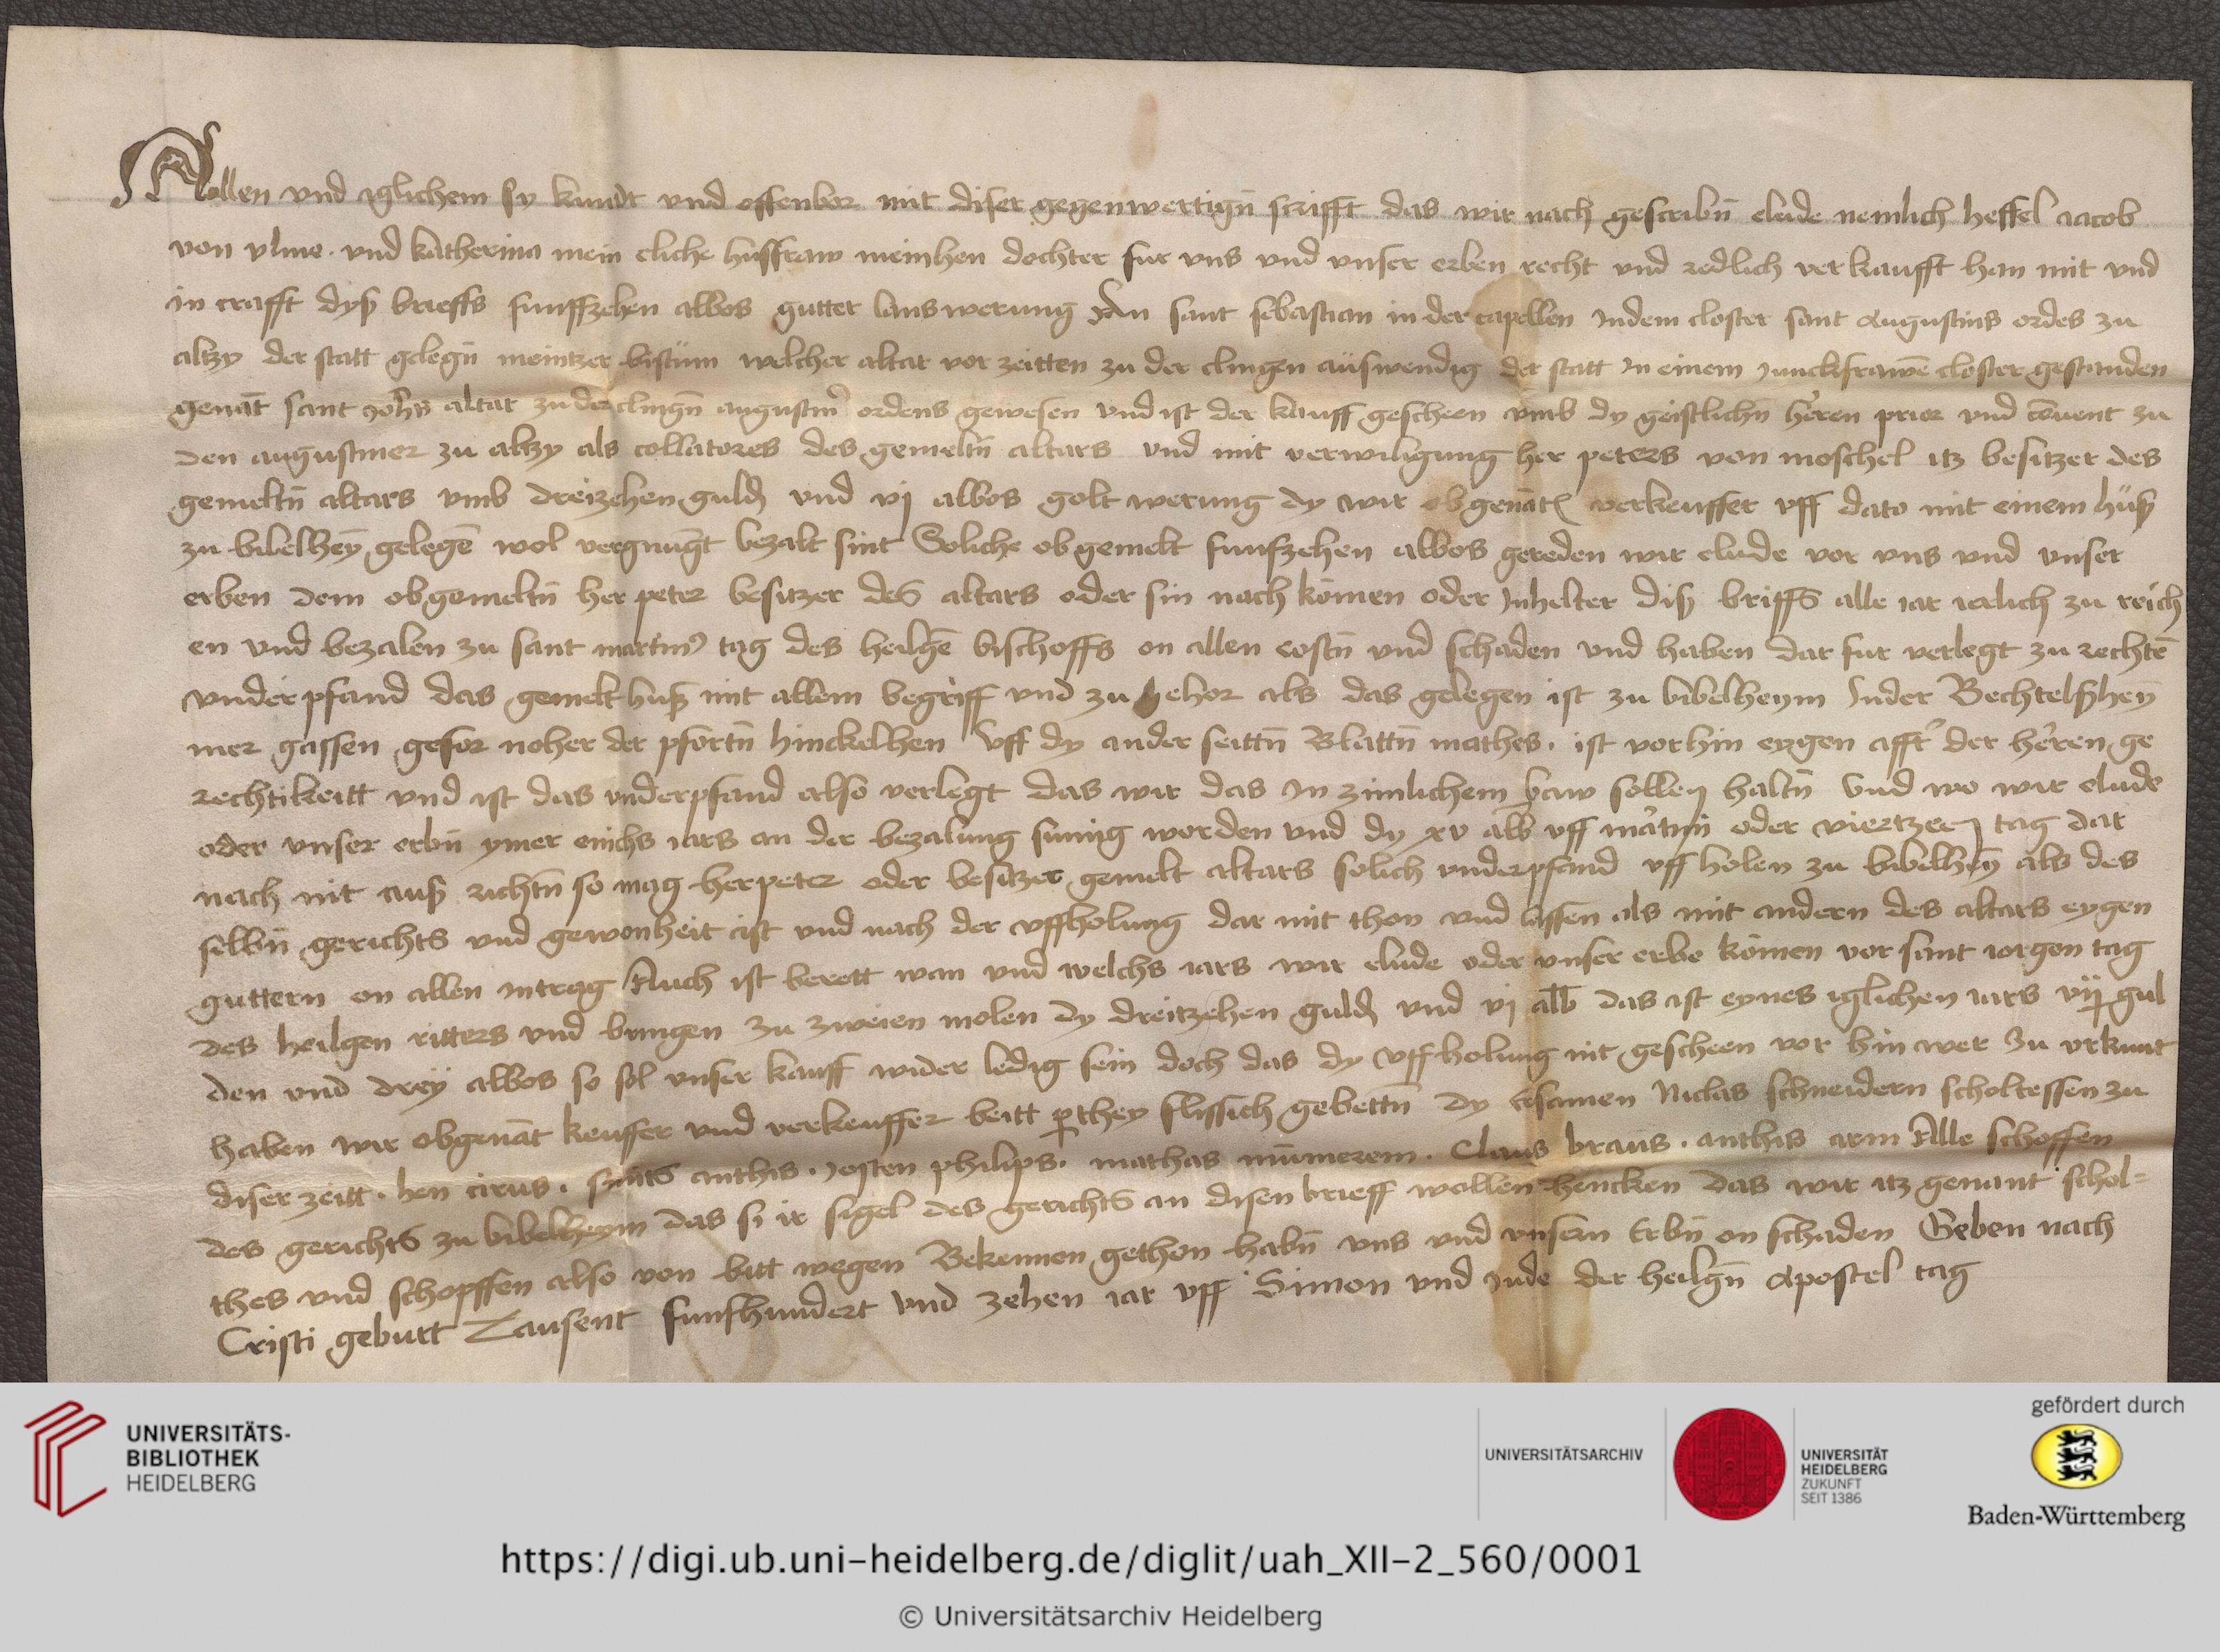 Allen vnd iglichem sy kundt vnd offenbor mit diser gegenwertign̄ scrifft das wir nach gescribn̄ elude nemlich heffel iacob
von vlme · vnd katherina mein eliche husfraw meinhen dochter fur vns vnd vnser erben recht vnd redlich verkaufft han mit vnd
in crafft dyß brieffs funffzehen albos gutter lans werung An sant sebastian in der capellen Indem closter sant Augustins ordes zu
altzy der statt gelegn̄ meintzer bistum welcher altar vor zeitten zu der clingen auswendig der statt In einem Junckfrawē closter gestanden
genāt sant Joh̄s altar zu der clingn̄ augustin' ordens gewesen vnd ist der kauff gescheen vmb dy geistlichn̄ heren prior vnd cōuent zu
den augustiner zu altzy als collatores des gemeltn̄ altars vnd mit verwiligung her peters von moschel itz besitzer des
gemeltn̄ altars vmb dreizehen guld vnd vj albos golt werung dy wir obgenātē verkeuffer vff dato mit einem huß
zu bibelheȳ gelegē wol vergnugt bezalt sint Soliche obgemelt funfzehen albos gereden wir elude vor vns vnd vnser
erben dem obgemeltn̄ her peter besitzer des altars oder sin nach kōmen oder Inhelter diß briffs alle iar ierlich zu reich
en vnd bezalen zu sant martin' tag des heilgē bischoffs on allen costn̄ vnd schaden vnd haben dar fur verlegt zu rechtē
vnderpfand das gemelt huß mit allem begriff vnd zu gehor als das gelegen ist zu bibelheym Inder Bechtelßheȳ
mer gassen gefor noher der pfortn̄ hinckelhen vff dy ander seittn̄ Blattn̄ mathes · ist vorhin eygen afft' der heren ge
rechtikeitt vnd ist das vnderpfand also verlegt das wir das In zimlichem baw sollen haltn̄ Vnd wo wir elude
oder vnser erbn̄ ymer einichs iars an der bezalung sumig worden vnd dy xv alb vff martini oder viertzeen tag dar
nach nit auß richtn̄ so mag her peter oder besitzer gemelt altars solich vnderpfand vff holen zu bibelheȳ als des
selbn̄ gerichts vnd gewonheit ist vnd nach der vffholung dar mit thon vnd lassen als mit andern des altars eygen
guttern on allen Intrag Auch ist berett wan vnd welchs iars wir elude oder vnser erbe kōmen vor sant iorgen tag
des heilgen ritters vnd bringen zu zweien molen dy dreitzehen guld vnd vj alb das ist eynes iglichen iars vij gul
den vnd drey albos so sol vnser kauff wider ledig sein doch das dy vffholung nit gescheen vor hin wer Zu vrkunt
haben wir obgenāt keuffer vnd verkeuffer beitt ꝑthey flissich gebettn̄ dy ersamen Niclas schneidern scholtessen zu
diser zeitt · hen cirus · anthis · Josten philips · mathas · Claus braus · anthis arm Alle schoffen
des gerichts zu bibelheym das si ir sigel des gerichts an disen brieff wollen hencken das wir itz genant schol=
thes vnd schopffen also von bitt wegen Bekennen gethon habn̄ vns vnd vnsern Erbn̄ on schaden Geben nach
Cristi geburt Tausent funfhundert vnd zehen iar vff Simon vnd Jude der heilgn̄ Apostel tag
UNIVERSITÄTS-
BIBLIOTHEK
HEIDELBERG
UNIVERSITÄTSARCHIV
UNIVERSITÄT
HEIDELBERG
ZUKUNFT
SEIT 1386
gefördert durch
Baden-Württemberg
https://digi.ub.uni-heidelberg.de/diglit/uah_XII-2_560/0001
© Universitätsarchiv Heidelberg